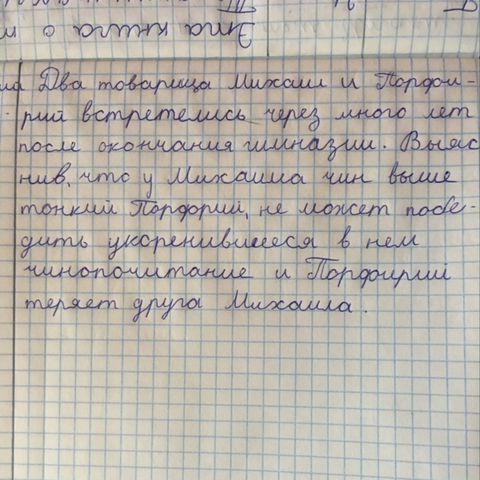 Эта книга о
Два товарища Михаил и Порфи-
рий встретелись через много лет
после окончания гимназии. Выяс
нив, что у Михаила чин выше
тонкий Порфорий, не может побе-
дить укоренившееся в нем
чинопочитание и Порфирий
теряет друга Михаила.